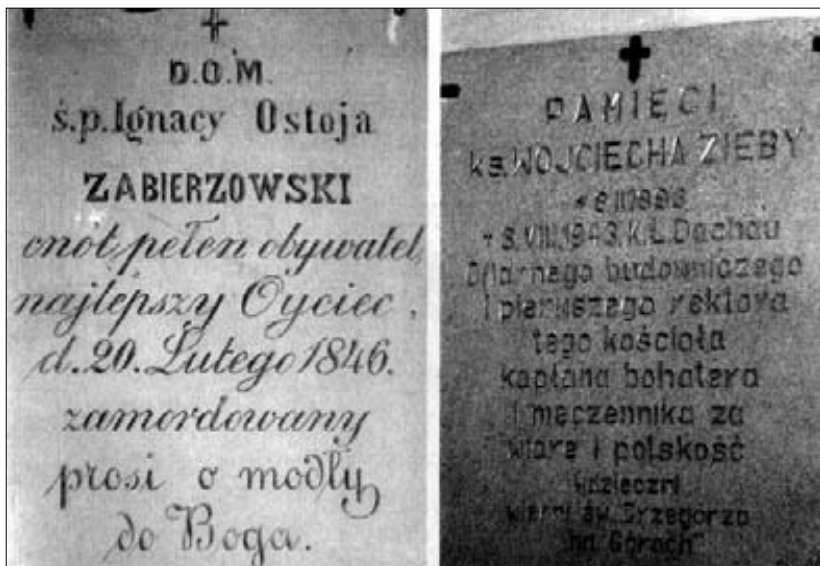 D.O.M.
ś.p. Ignacy Ostoja
ZABIERZOWSKI
cnót pełen obywatel,
najlepszy Oyciec,
d. 20. Lutego 1846.
zamordowany
prosi o modły
do Boga.
PAMIĘCI
ks. WOJCIECHA ZIĘBY
VIII.1943. K.L. Dachau
Ofiarnego budowniczego
i pierwszego rektora
tego kościoła
kapłana bohatera
i męczennika za
wiarę i polskość
wdzięczni
wierni św. Grzegorza
"na Górach"